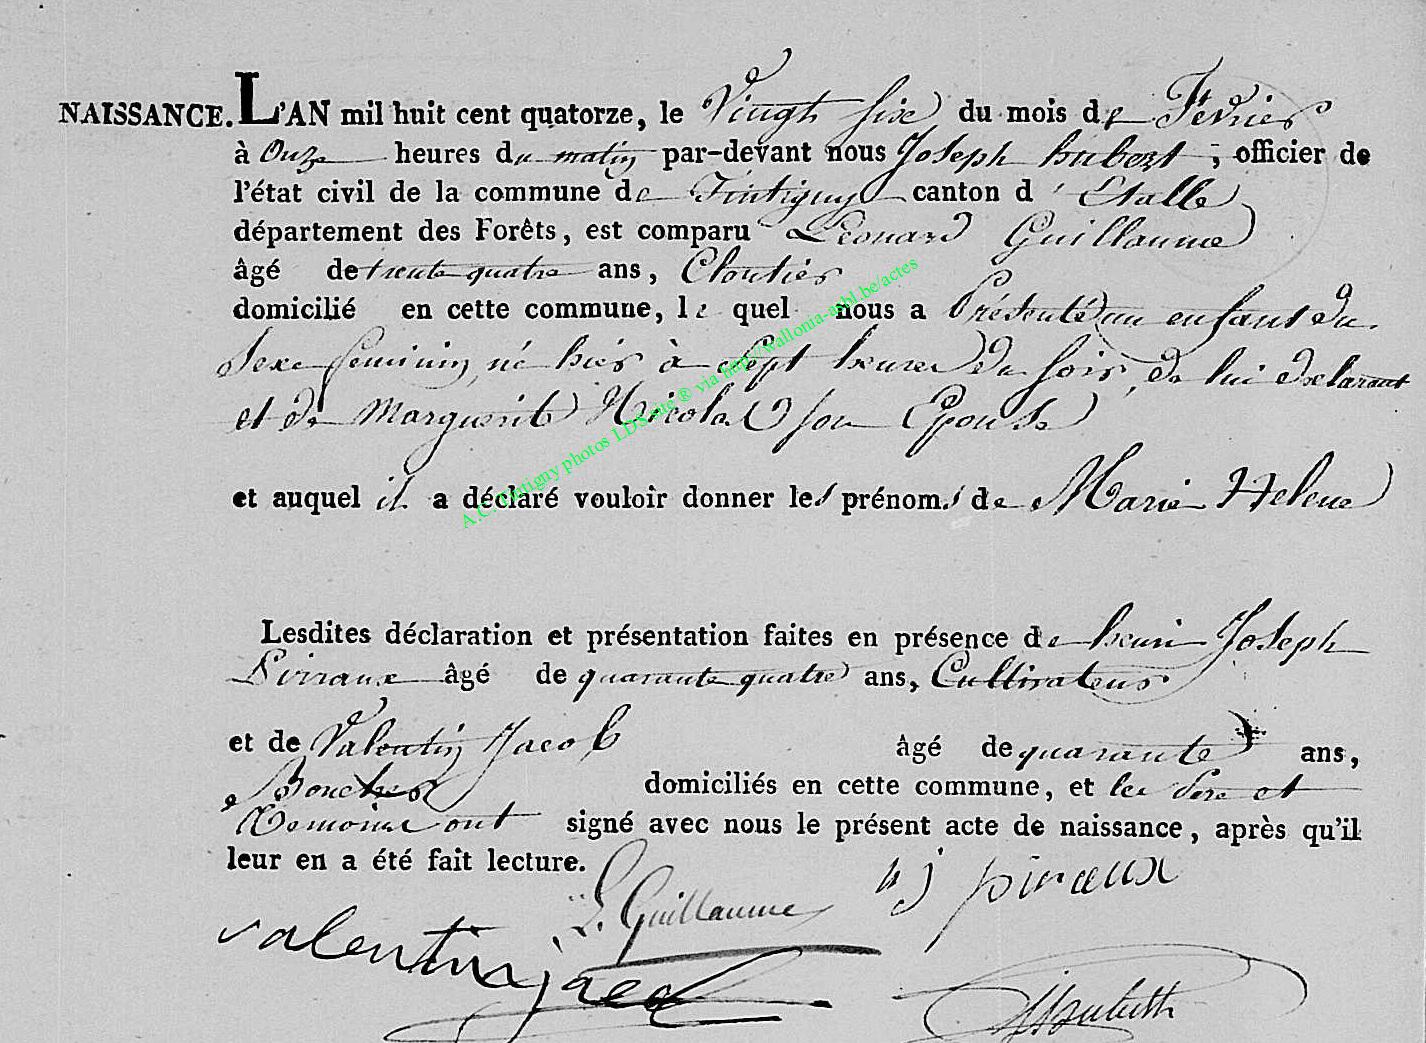 NAISSANCE. L'AN mil huit cent quatorze, le Vingt six du mois de Fevrier
à Onze heures du matin par-devant nous Joseph hubert, officier de
l'état civil de la commune de Tintigny canton d'Etalle
département des Forêts, est comparu Léonard Guillaume
âgé de trente quatre ans, Cloutier
domicilié en cette commune, le quel nous a Présenté un enfant du
Sexe feminin, né hier à Sept heures du soir, de lui declarant
et de Marguerite Nicolas son Epouse
et auquel il a déclaré vouloir donner les prénoms de Marie Helene
Lesdites déclaration et présentation faites en présence de henri Joseph
Pirraux âgé de quarante quatre ans, Cultivateur
et de Valentin Jacob âgé de quarante ans,
domiciliés en cette commune, et les Pere et
Temoins ont signé avec nous le présent acte de naissance, après qu'il
leur en a été fait lecture.
L. Guillaume hj piraux
valentin jacob
A.C. Tintigny photos LDS site ® via http://wallonia-asbl.be/actes